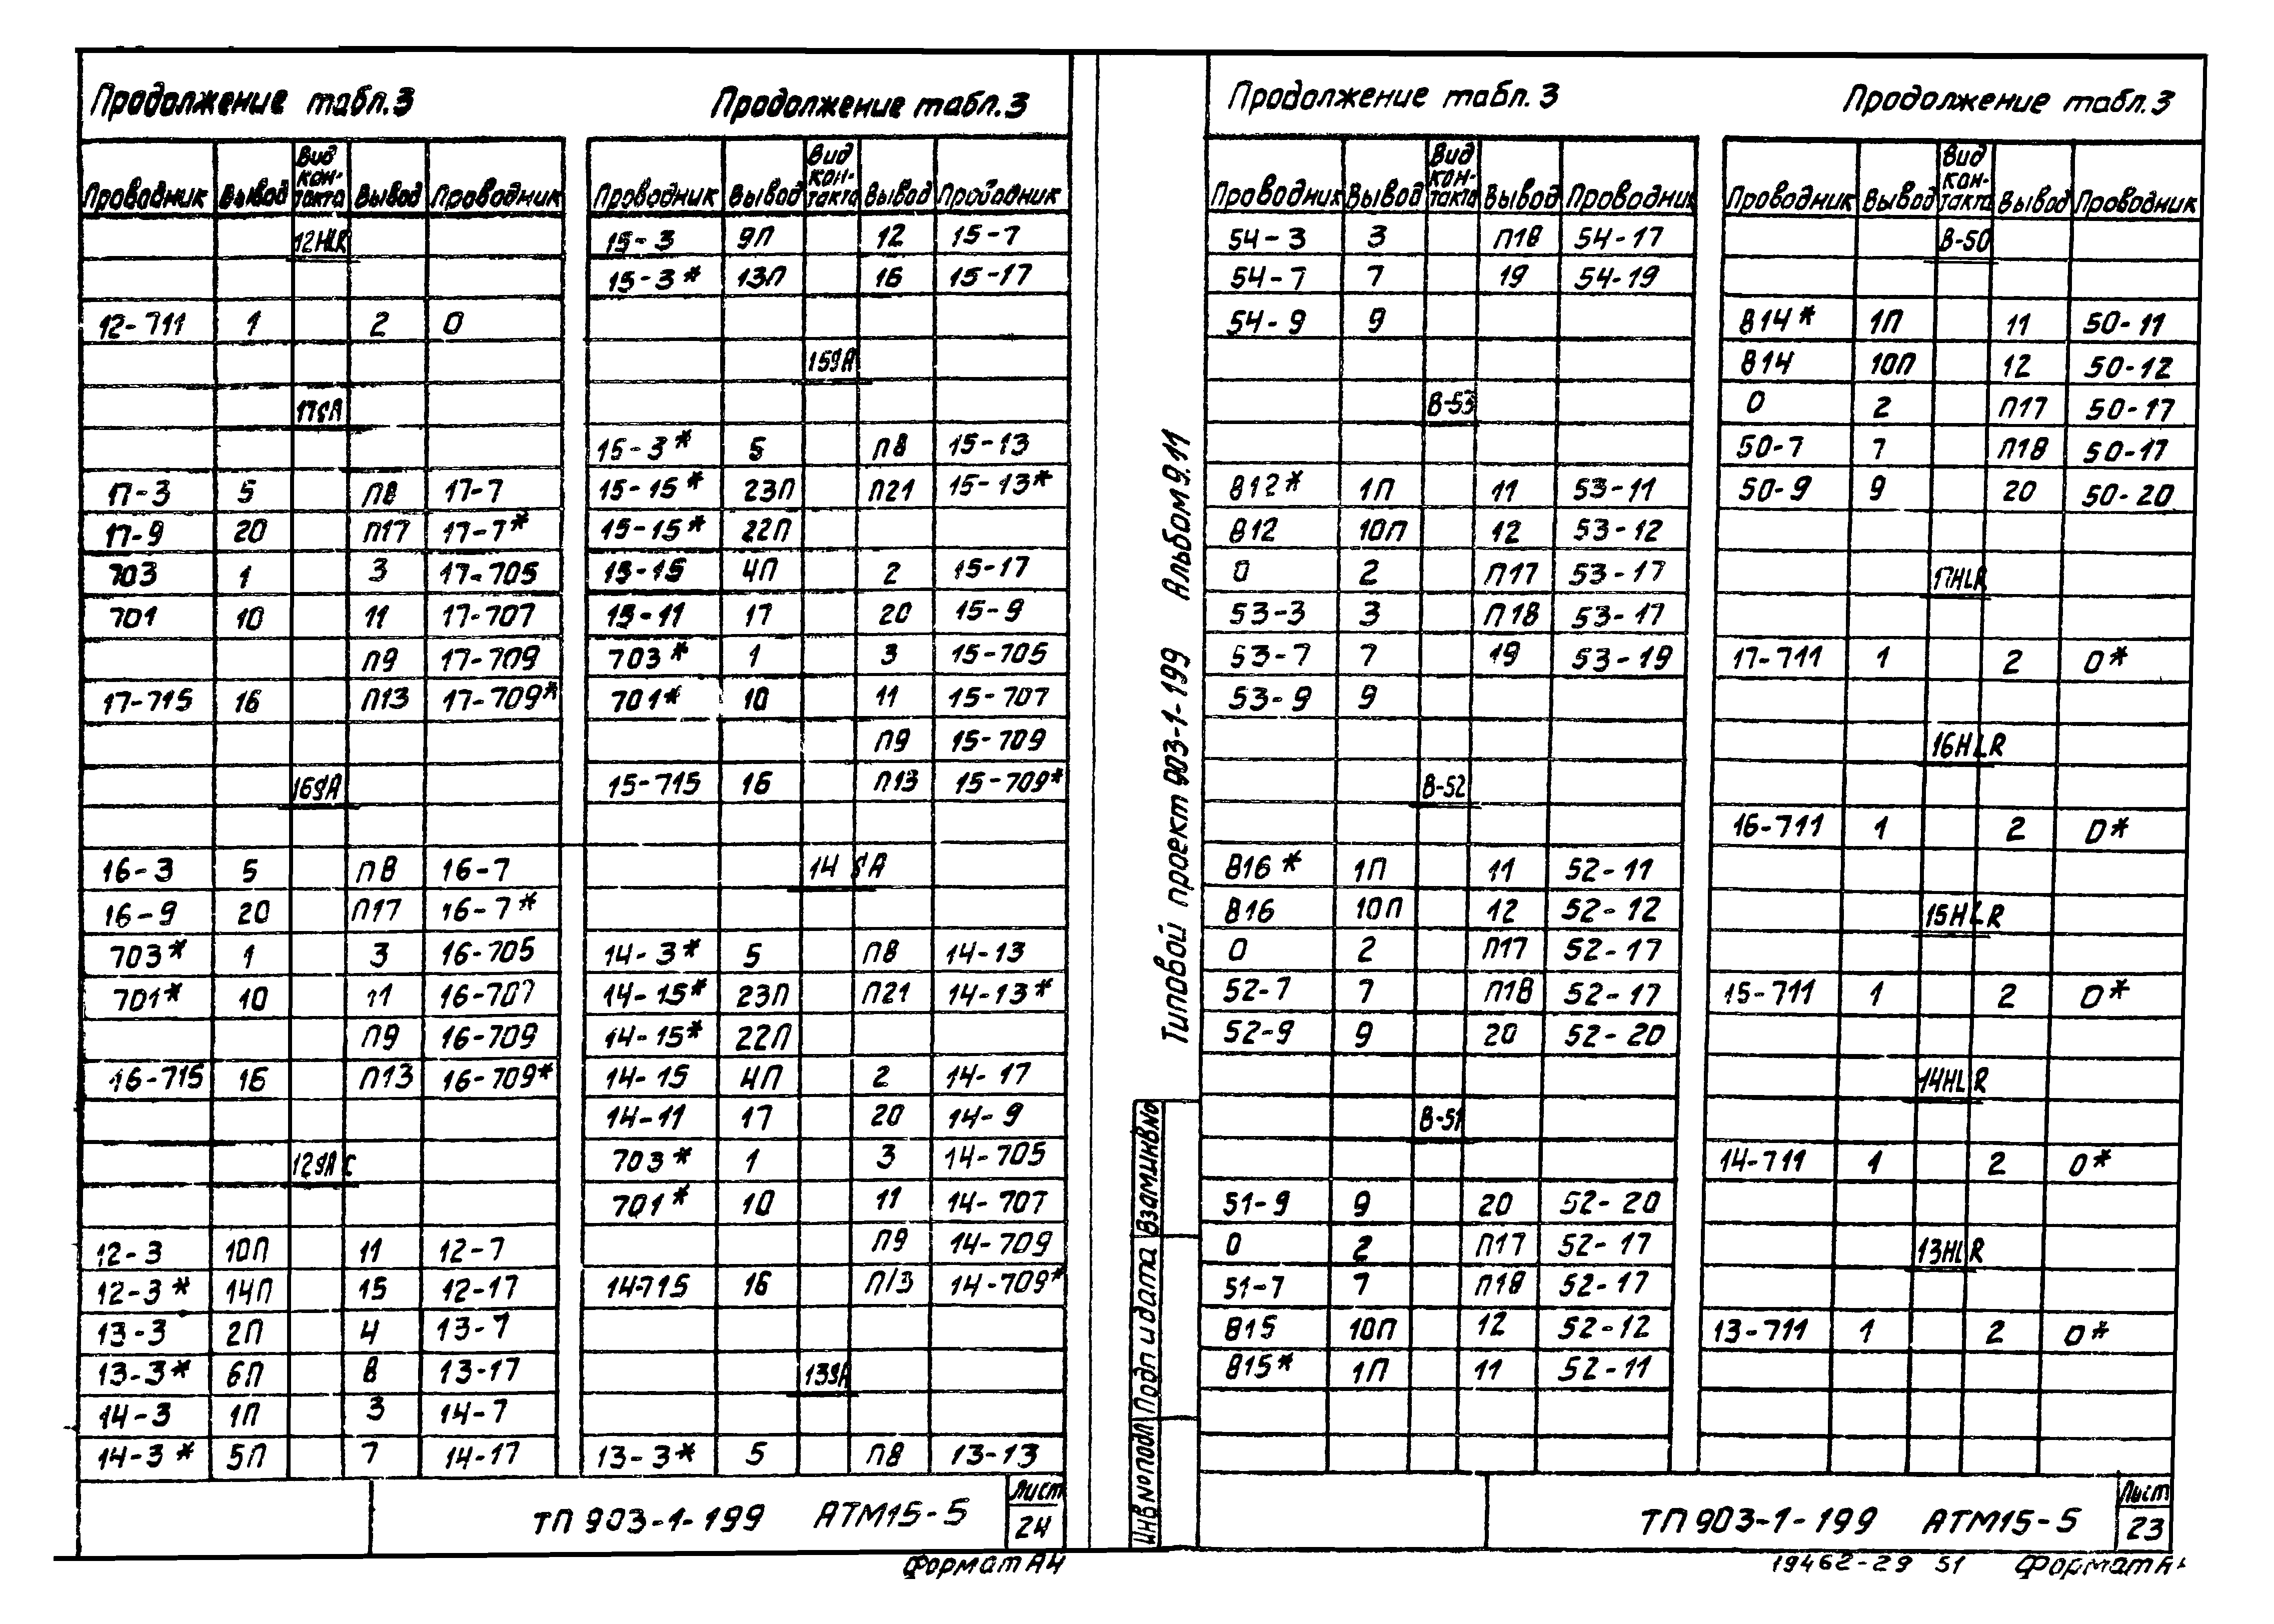 Продолжение табл.3
Проводник Вывод Вид контакта Вывод Проводник
12HLR
12-711 1 2 0
17SA
17-3 5 П8 17-7
17-9 20 П17 17-7*
703 1 3 17-705
701 10 11 17-707
П9 17-709
17-715 16 П13 17-709*
16SA
16-3 5 П8 16-7
16-9 20 П17 16-7*
703* 1 3 16-705
701* 10 11 16-707
П9 16-709
16-715 16 П13 16-709*
12SAC
12-3 10П 11 12-7
12-3* 14П 15 12-17
13-3 2П 4 13-7
13-3* 6П 8 13-17
14-3 1П 3 14-7
14-3* 5П 7 14-17
Продолжение табл.3
Проводник Вывод Вид контакта Вывод Проводник
15-3 9П 12 15-7
15-3* 13П 16 15-17
15SA
15-3* 5 П8 15-13
15-15* 23П П21 15-13*
15-15* 22П
15-15 4П 2 15-17
15-11 17 20 15-9
703* 1 3 15-705
701* 10 11 15-707
П9 15-709
15-715 16 П13 15-709*
14SA
14-3* 5 П8 14-13
14-15* 23П П21 14-13*
14-15* 22П
14-15 4П 2 14-17
14-11 17 20 14-9
703* 1 3 14-705
701* 10 11 14-707
П9 14-709
14-715 16 П13 14-709*
13SA
13-3* 5 П8 13-13
ТП 903-1-199 АТМ15-5
Лист
24
Формат А4
Типовой проект 903-1-199 Альбом 9.11
Взам инв №
Подп и дата
Инв № подл
Продолжение табл.3
Проводник Вывод Вид контакта Вывод Проводник
54-3 3 П18 54-17
54-7 7 19 54-19
54-9 9
В-53
812* 1П 11 53-11
812 10П 12 53-12
0 2 П17 53-17
53-3 3 П18 53-17
53-7 7 19 53-19
53-9 9
В-52
816* 1П 11 52-11
816 10П 12 52-12
0 2 П17 52-17
52-7 7 П18 52-17
52-9 9 20 52-20
В-51
51-9 9 20 52-20
0 2 П17 52-17
51-7 7 П18 52-17
815 10П 12 52-12
815* 1П 11 52-11
Продолжение табл.3
Проводник Вывод Вид контакта Вывод Проводник
В-50
814* 1П 11 50-11
814 10П 12 50-12
0 2 П17 50-17
50-7 7 П18 50-17
50-9 9 20 50-20
17HLR
17-711 1 2 0*
16HLR
16-711 1 2 0*
15HLR
15-711 1 2 0*
14HLR
14-711 1 2 0*
13HLR
13-711 1 2 0*
ТП 903-1-199 АТМ15-5
Лист
23
19462-29 51 Формат А4